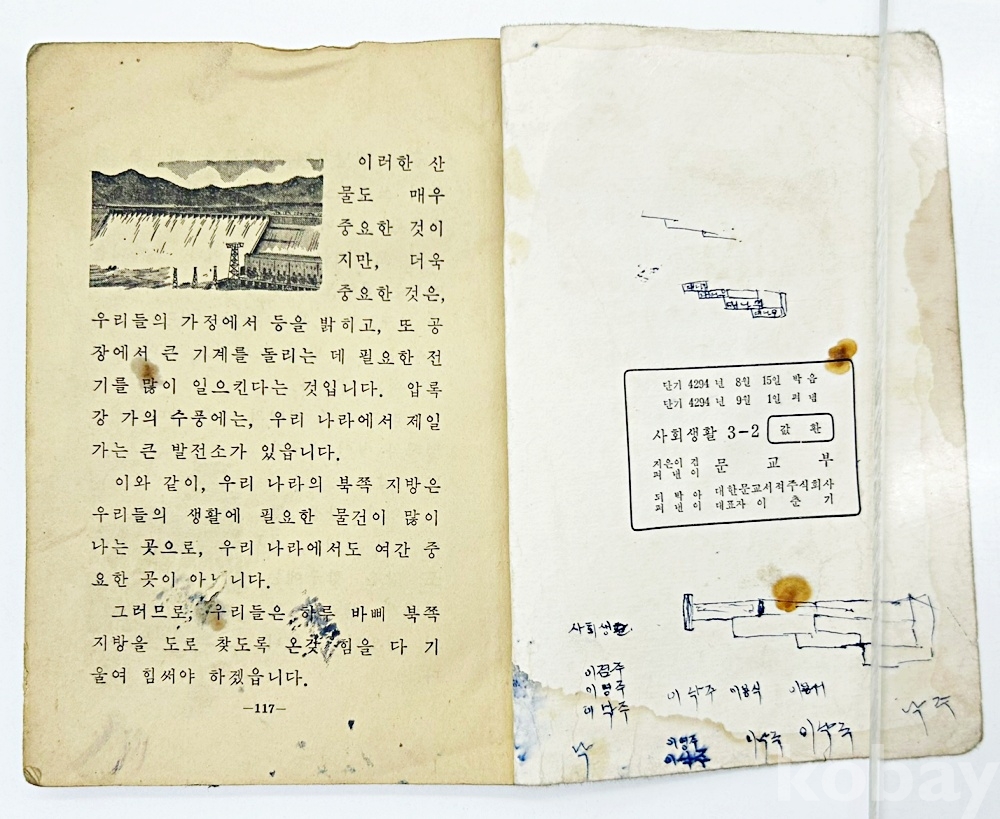 이러한 산
물도 매우
중요한 것이
지만, 더욱
중요한 것은,
우리들의 가정에서 등을 밝히고, 또 공
장에서 큰 기계를 돌리는 데 필요한 전
기를 많이 일으킨다는 것입니다. 압록
강 가의 수풍에는, 우리 나라에서 제일
가는 큰 발전소가 있읍니다.
이와 같이, 우리 나라의 북쪽 지방은
우리들의 생활에 필요한 물건이 많이
나는 곳으로, 우리 나라에서도 여간 중
요한 곳이 아닙니다.
그러므로, 우리들은 하루 바삐 북쪽
지방을 도로 찾도록 온갖 힘을 다 기
울여 힘써야 하겠읍니다.
—117—
단기 4294 년 8월 15일 박음
단기 4294 년 9월 1일 펴냄
사회생활 3-2
값 환
지은이 겸
펴낸이
문교부
되박아
펴낸이
대한문교서적주식회사
대표자 이춘기
사회생활
이영주
이낙주
이낙주
이영주
이낙주
낙
낙주
kobay